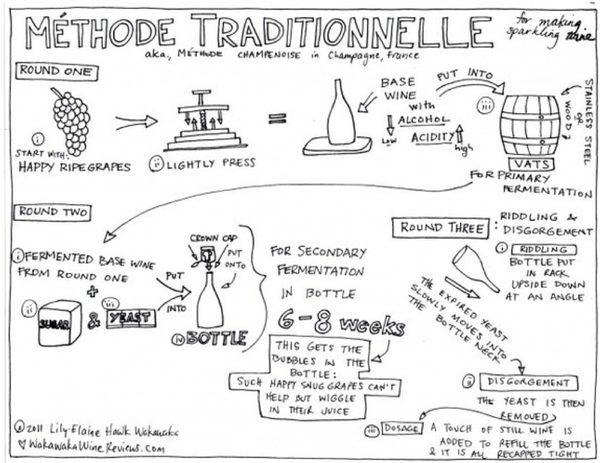 MÉTHODE TRADITIONNELLE
for making
sparkling wine
aka., MÉTHODE CHAMPENOISE in Champagne, france
ROUND ONE
i
START WITH:
HAPPY RIPE GRAPES
ii LIGHTLY PRESS
=
BASE
WINE
with
ALCOHOL
low
ACIDITY
high
PUT INTO
iii
STAINLESS STEEL
or
WOOD?
VATS
FOR PRIMARY
FERMENTATION
ROUND TWO
i FERMENTED BASE WINE
FROM ROUND ONE
+
ii SUGAR & iii YEAST
PUT
INTO
CROWN CAP
PUT
ONTO
iv BOTTLE
FOR SECONDARY
FERMENTATION
IN BOTTLE
6-8 weeks
THIS GETS THE
BUBBLES IN THE
BOTTLE:
SUCH HAPPY SNUG GRAPES CAN'T
HELP BUT WIGGLE
IN THEIR JUICE
ROUND THREE: RIDDLING &
DISGORGEMENT
i RIDDLING
BOTTLE PUT
IN RACK
UPSIDE DOWN
AT AN ANGLE
THE EXPIRED YEAST
SLOWLY MOVES INTO
THE BOTTLE NECK
ii DISGORGEMENT
THE YEAST IS THEN
REMOVED
iii DOSAGE A TOUCH OF STILL WINE IS
ADDED TO REFILL THE BOTTLE
& IT IS ALL RECAPPED TIGHT
© 2011 Lily-Elaine Hawk Wakawaka
WakawakaWineReviews.com